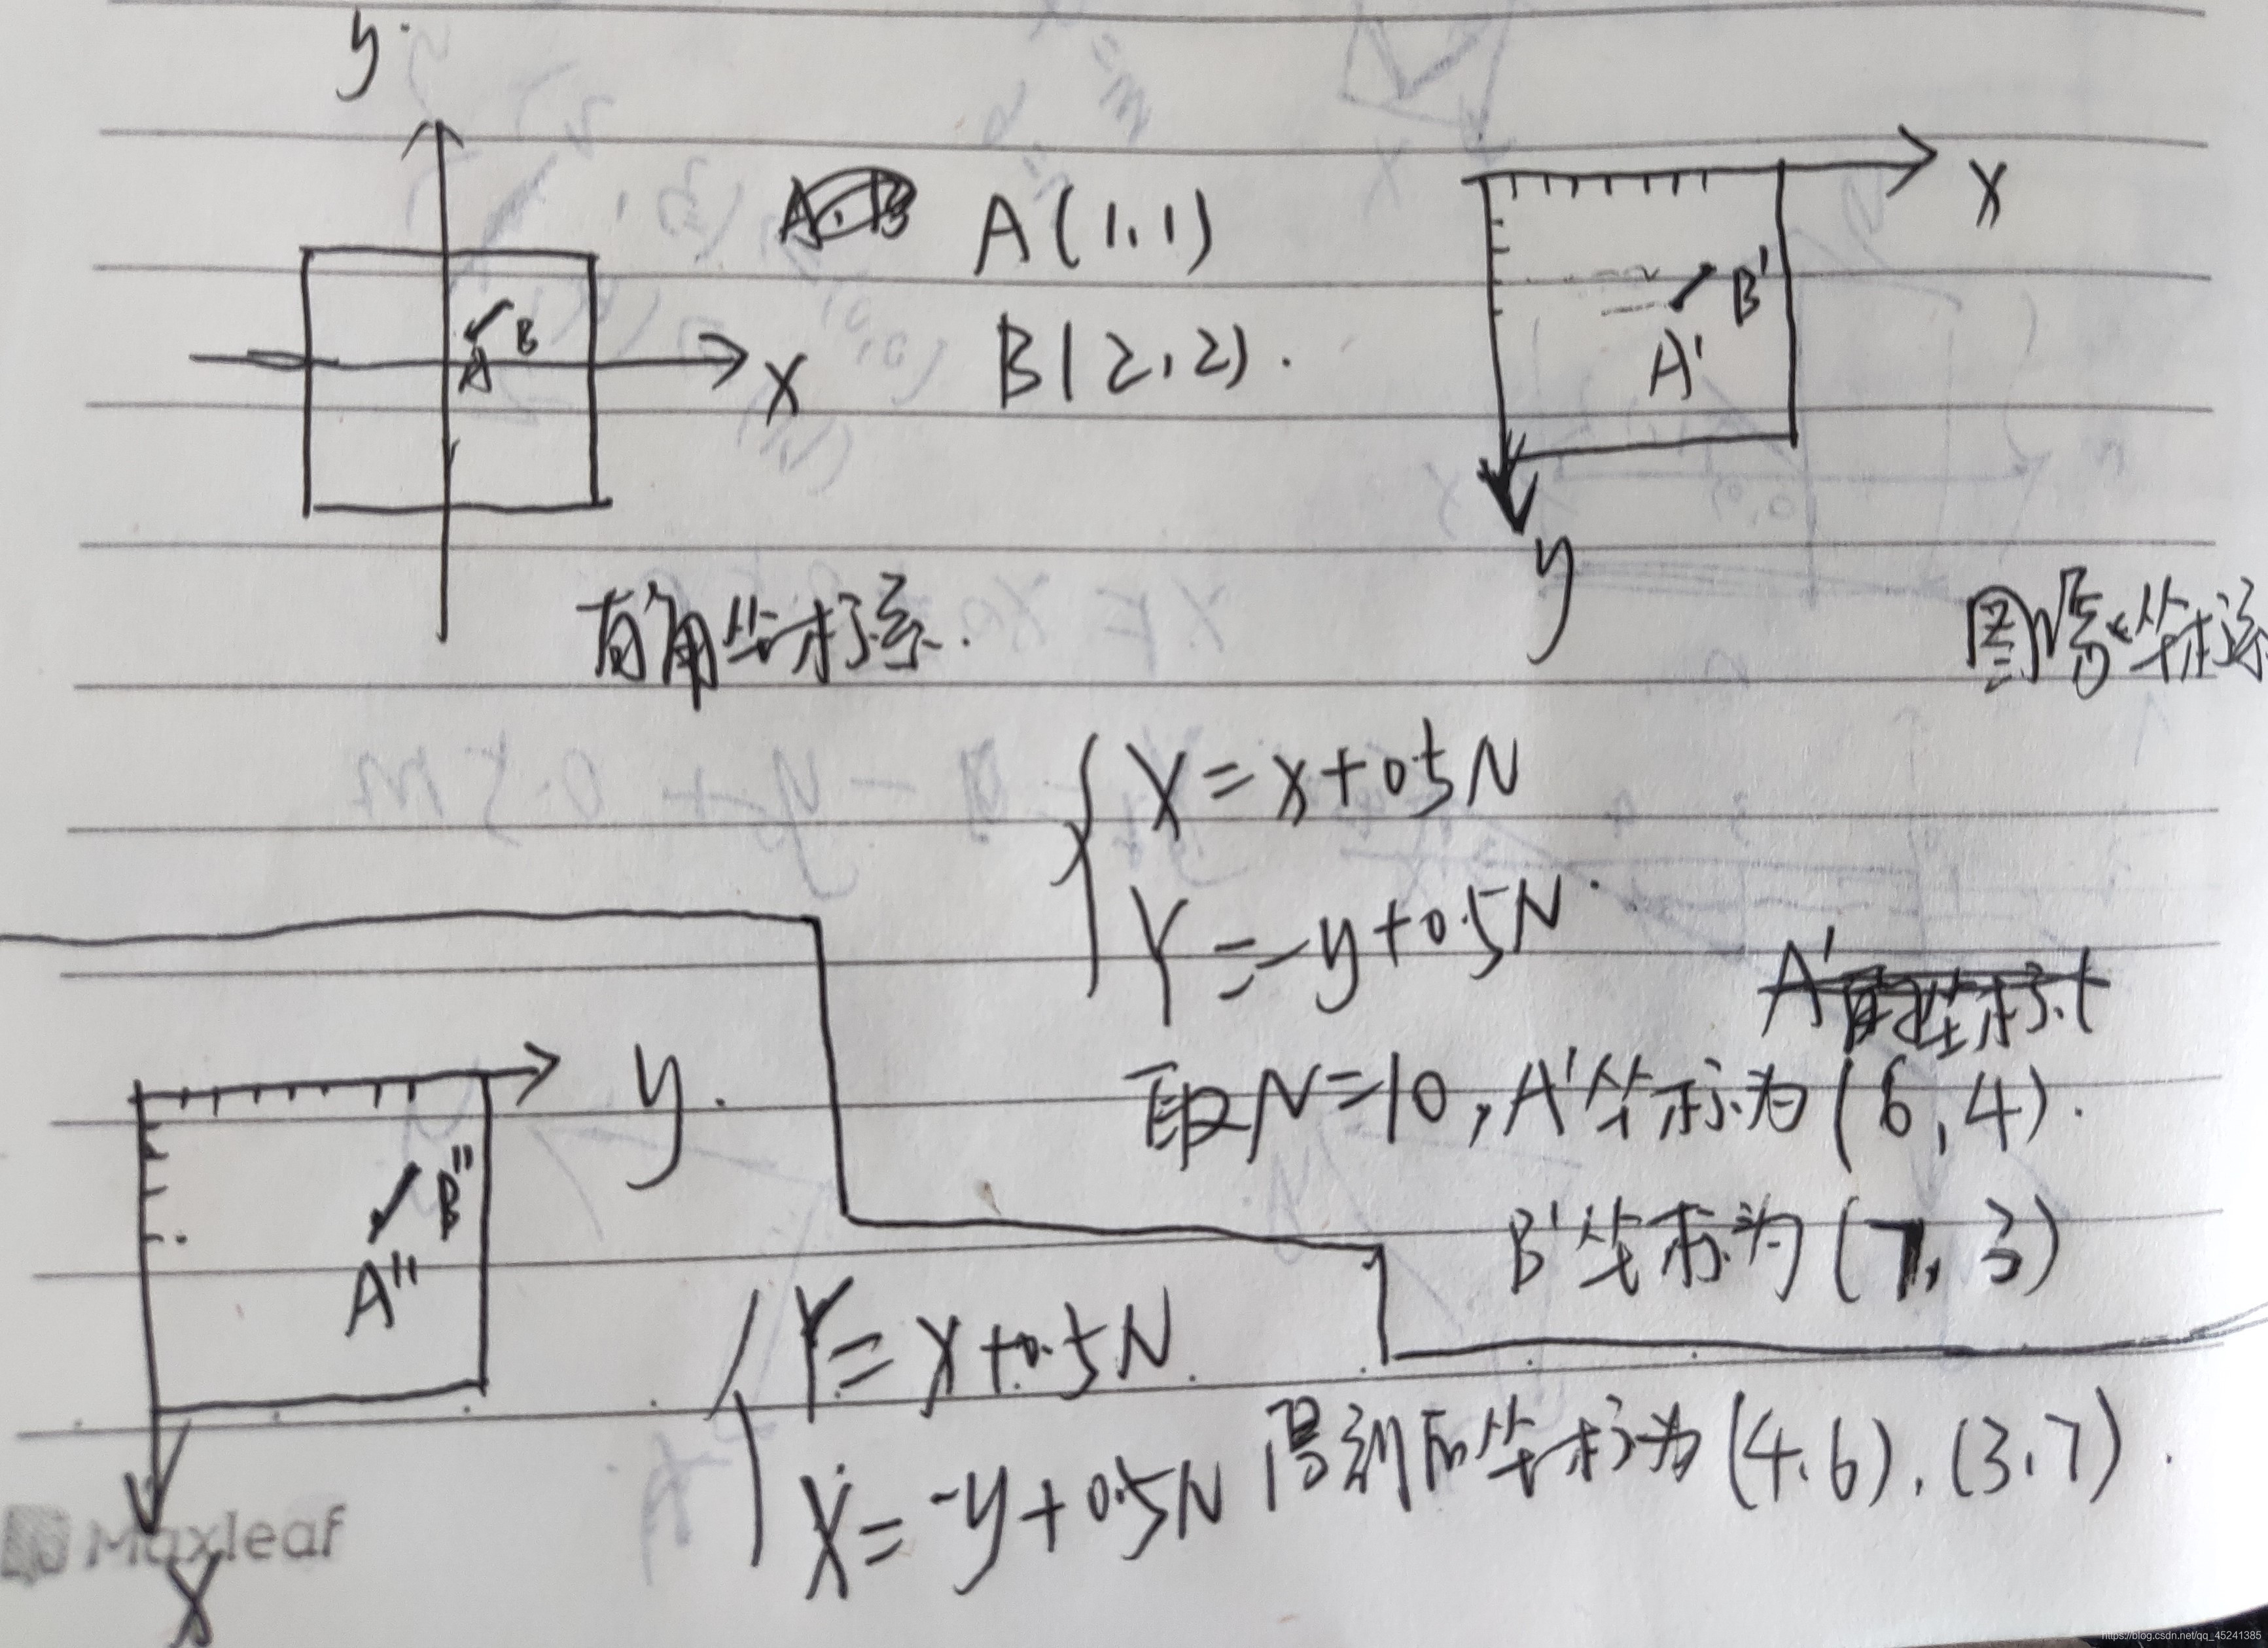 y
A(1,1)
B(2,2).
x
A
B
x
B'
A'
y
直角坐标系.
图像坐标系
X=x+0.5N
Y=-y+0.5N
A'的坐标
取N=10,A'坐标为(6,4).
B'坐标为(7,3)
y.
B"
A"
x
Y=x+0.5N
X=-y+0.5N
得到后坐标为(4,6),(3,7).
Maxleaf
https://blog.csdn.net/qq_45241385